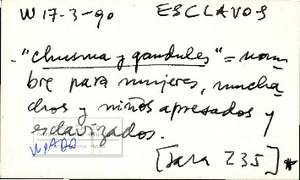 W 17-3-90 ESCLAVOS-
- "chusma y gandules" = nom
bre para mujeres, mucha
chos y niños apresados y
esclavizados.
[Sara 235] *